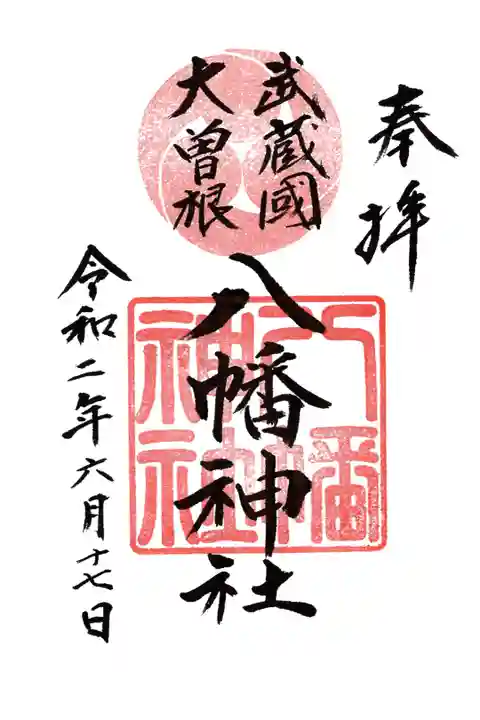 奉拝
武蔵國
大曽根
八幡神社
八幡
神社
令和二年六月十七日